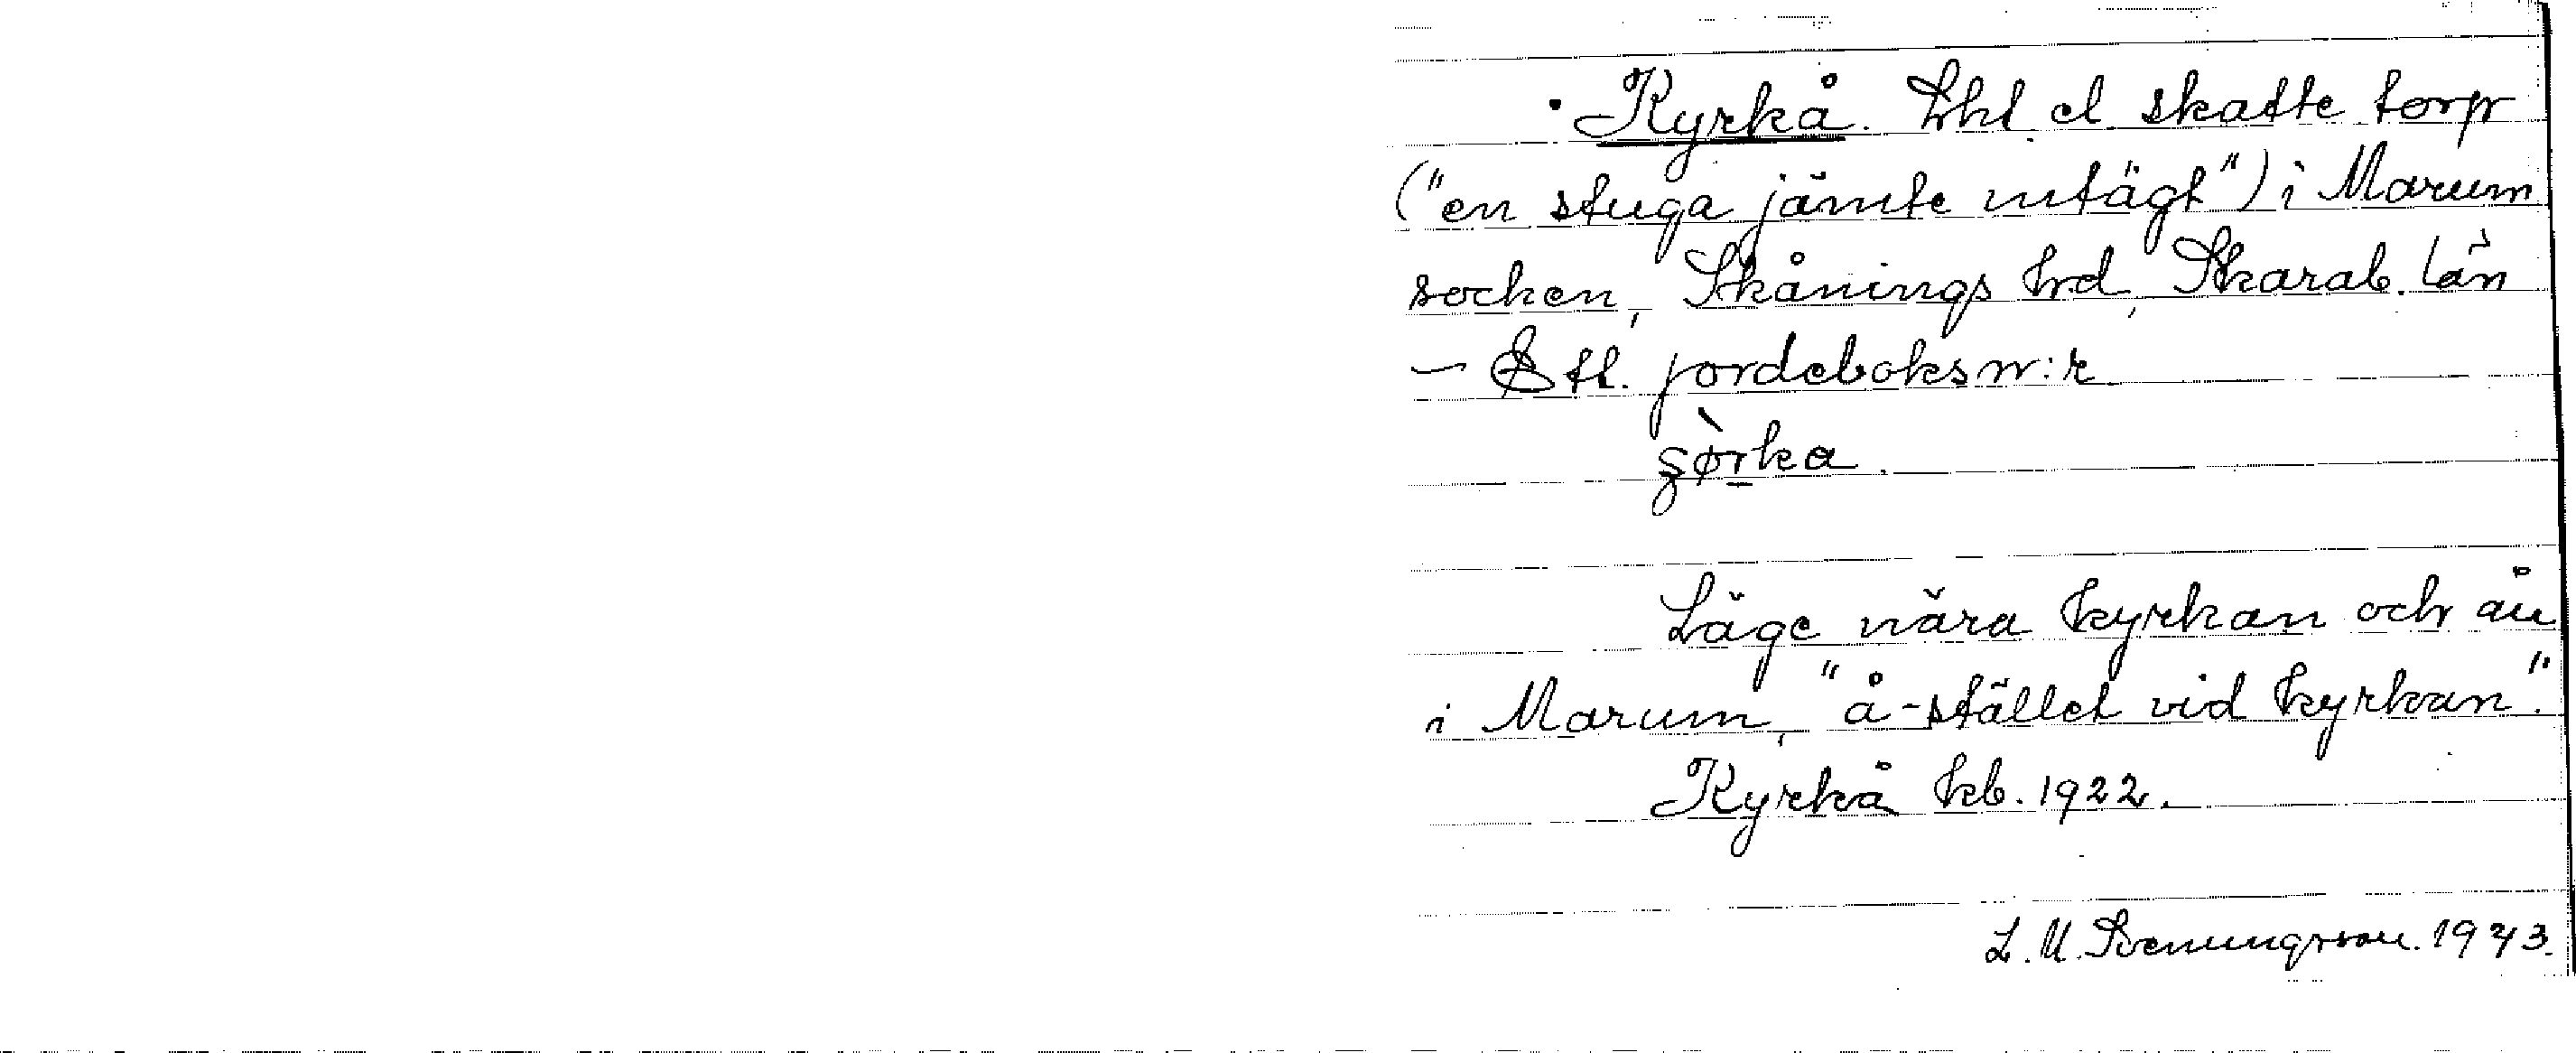 Kyrkå. Lht el. skatte torp
("en stuga jämte utägt") i Marum
socken, Skånings hrd, Skarab. län
– Efl. jordeboksnr:r
şörka.
Läge nära kyrkan och ån
i Marum, "å-stället vid kyrkan".
Kyrkå kb. 1922.
L. M. Svenungsson. 1943.